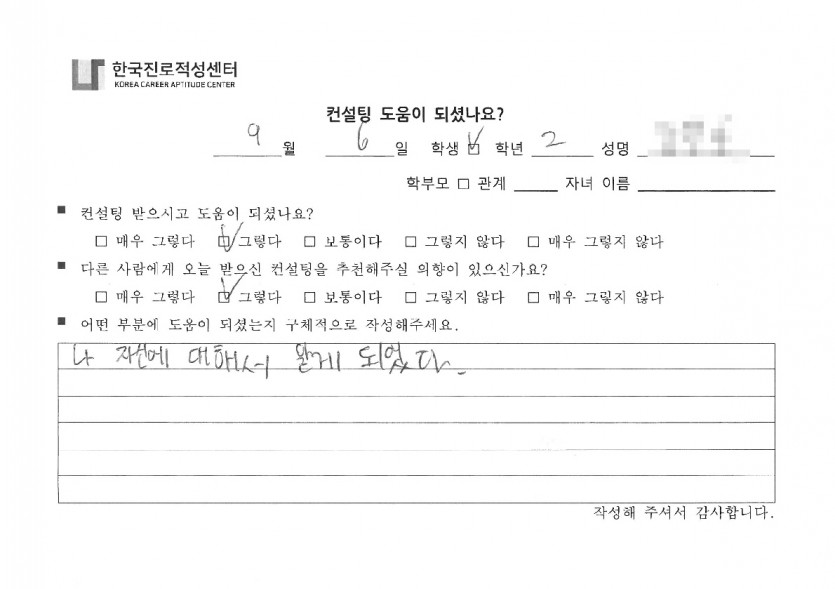 한국진로적성센터
KOREA CAREER APTITUDE CENTER
컨설팅 도움이 되셨나요?
9 월 6 일 학생 ☑ 학년 2 성명
학부모 □ 관계 자녀 이름
■ 컨설팅 받으시고 도움이 되셨나요?
□ 매우 그렇다 ☑ 그렇다 □ 보통이다 □ 그렇지 않다 □ 매우 그렇지 않다
■ 다른 사람에게 오늘 받으신 컨설팅을 추천해주실 의향이 있으신가요?
□ 매우 그렇다 ☑ 그렇다 □ 보통이다 □ 그렇지 않다 □ 매우 그렇지 않다
■ 어떤 부분에 도움이 되셨는지 구체적으로 작성해주세요.
나 자신에 대해서 알게 되었다.
작성해 주셔서 감사합니다.